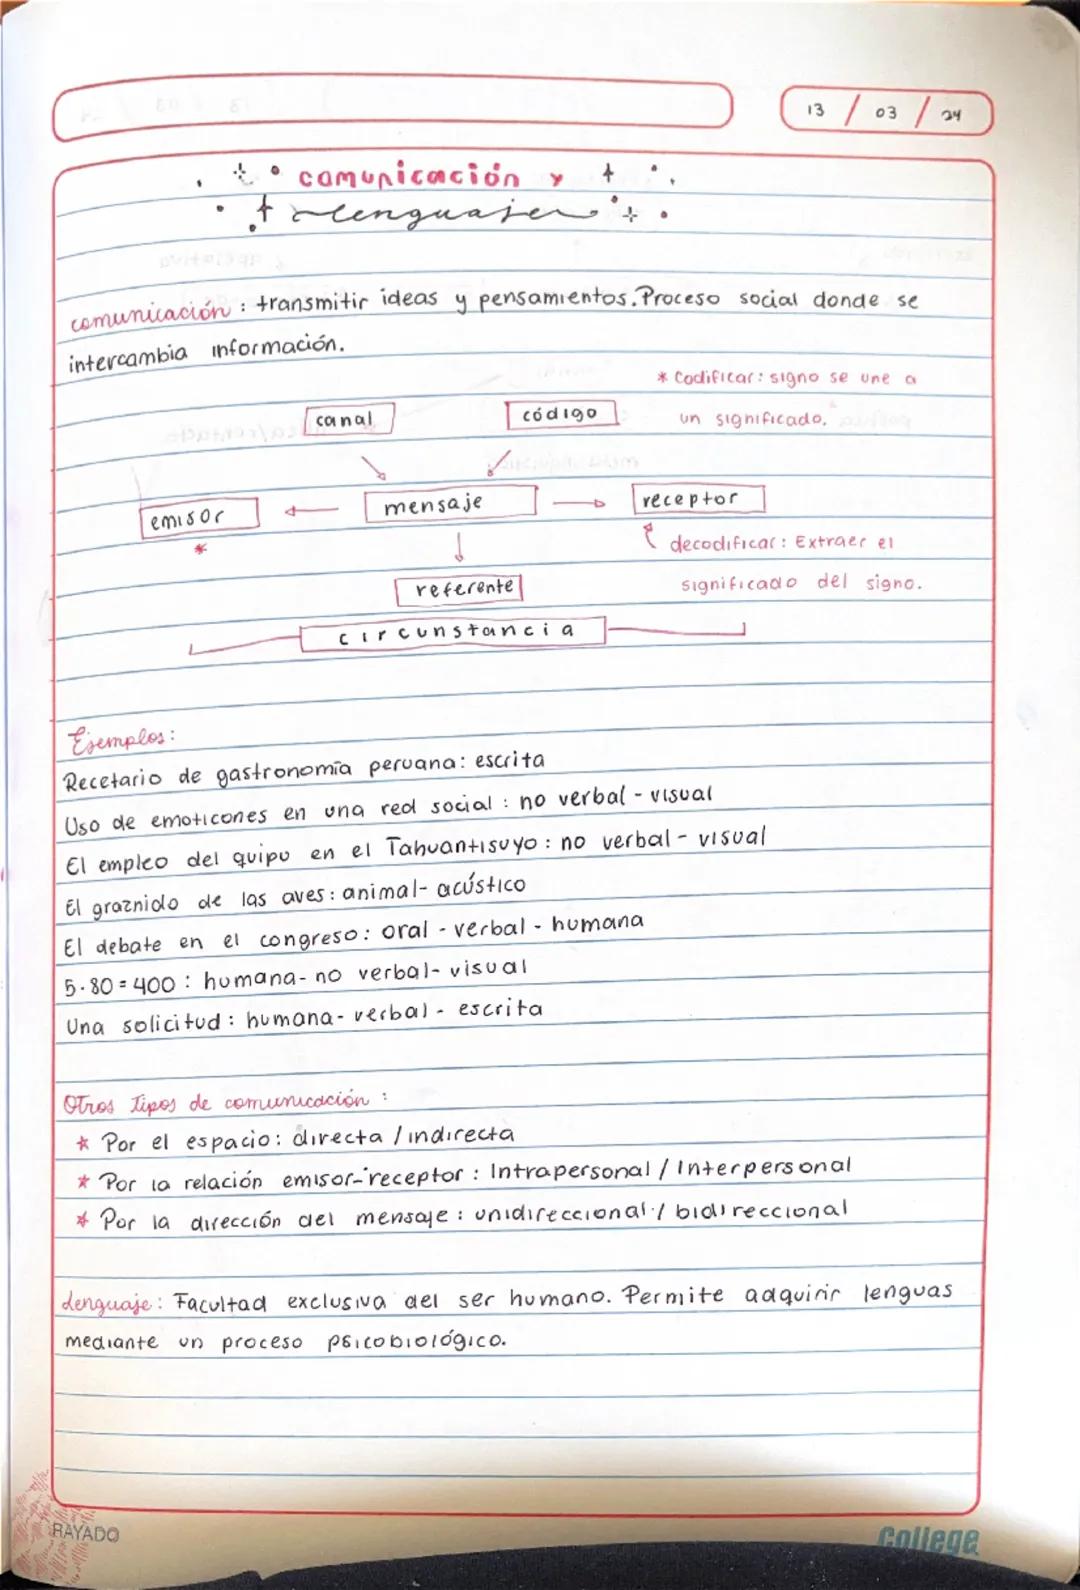 13 / 03 / 24
comunicación y
lenguaje
comunicación : transmitir ideas y pensamientos. Proceso social donde se
intercambia información.
* Codificar: signo se une a
un significado.
canal
código
emisor
mensaje
receptor
*
decodificar: Extraer el
significado del signo.
referente
circunstancia
Ejemplos:
Recetario de gastronomía peruana: escrita
Uso de emoticones en una red social : no verbal - visual
El empleo del quipu en el Tahuantisuyo : no verbal - visual
El graznido de las aves : animal - acústico
El debate en el congreso: oral - verbal - humana
5·80 = 400 : humana - no verbal - visual
Una solicitud : humana - verbal - escrita
Otros tipos de comunicación :
* Por el espacio: directa / indirecta
* Por la relación emisor-receptor : Intrapersonal / Interpersonal
* Por la dirección del mensaje : unidireccional / bidireccional
Lenguaje : Facultad exclusiva del ser humano. Permite adquirir lenguas
mediante un proceso psicobiológico.
RAYADO
College